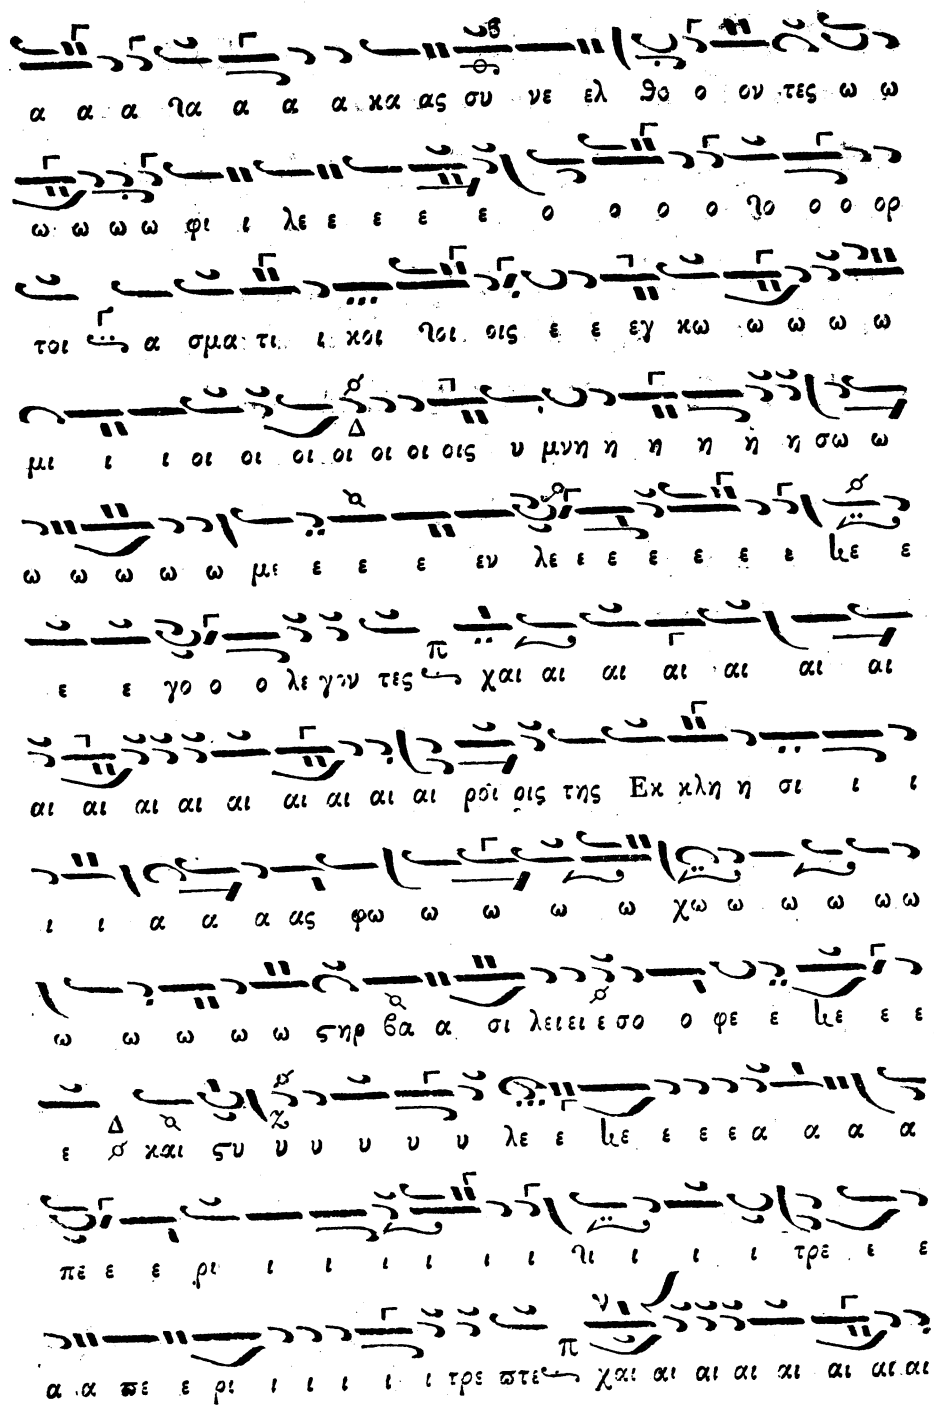 α α α για α α α κα ας συ νε ελ θο ο ον τες ω ω
ω ω ω ω φι ι λε ε ε ε ε ο ο ο ο γο ο ο ορ
τοι α σμα τι ι κοι γοι οις ε ε εγ κω ω ω ω ω
μι ι ι οι οι οι οι οι οι οις υ μνη η η η η η σω ω
ω ω ω ω ω με ε ε ε εν λε ε ε ε ε ε ε ε ε
ε ε γο ο ο λε γον τες χαι αι αι αι αι αι αι
αι αι αι αι αι αι αι αι αι ροι οις της Εκ κλη η σι ι ι
ι ι α α α ας φω ω ω ω ω χω ω ω ω ω ω
ω ω ω ω ω ςηρ βα α σι λει ει ε σο ο φε ε ε ε
ε Δ και ςυ υ υ υ υ υ λε ε ε ε ε ε α α α α
πε ε ε ρι ι ι ι ι ι ι γι ι ι ι τρε ε ε
α α πε ε ρι ι ι ι ι ι τρε πτε χαι αι αι αι αι αι αι αι